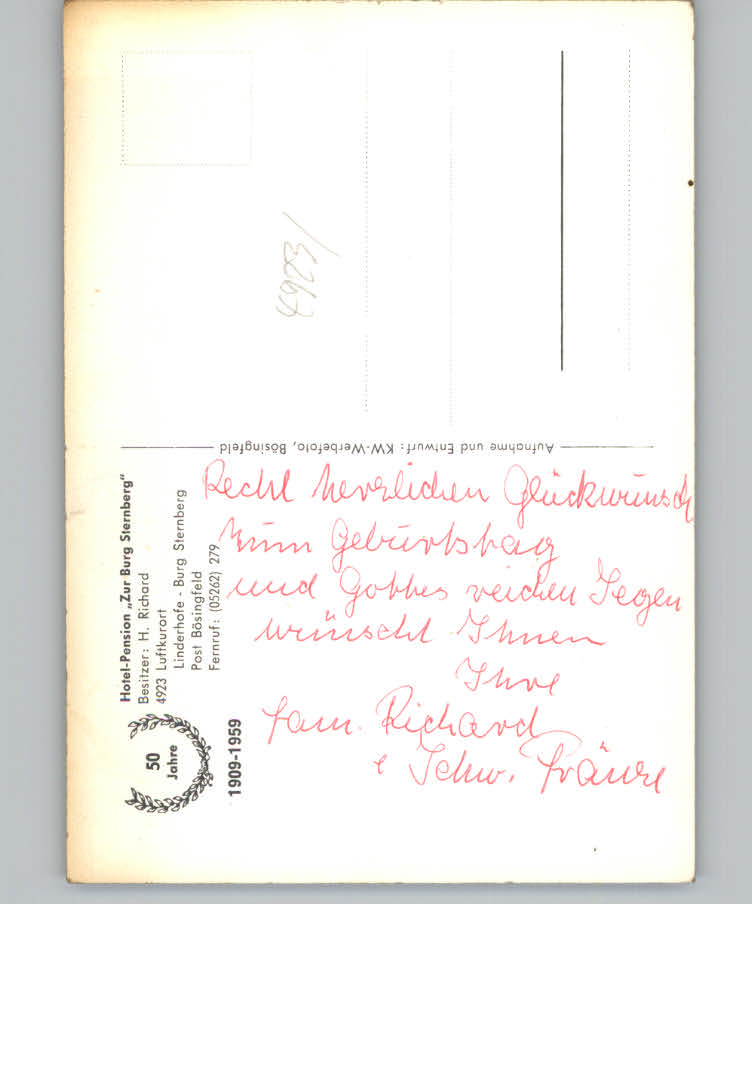 Hotel-Pension „Zur Burg Sternberg"
Besitzer: H. Richard
4923 Luftkurort
Linderhofe - Burg Sternberg
Post Bösingfeld
Fernruf: (05262) 279
50
Jahre
1909-1959
Aufnahme und Entwurf: KW-Werbefoto, Bösingfeld
Recht herzlichen Glückwunsch
zum Geburtstag
und Gottes reichen Segen
wünscht Ihnen
Ihre
Fam. Richard
Schw.